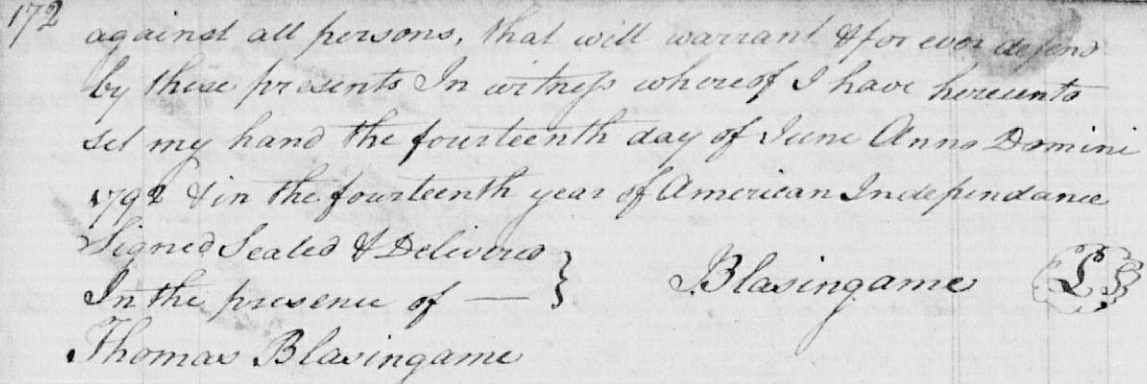 172
against all persons, that will warrant & for ever defend
by these presents In witness whereof I have hereunto
set my hand the fourteenth day of June Anno Domini
1792 & in the fourteenth year of American Independance
Signed Sealed & Delivered
In the presence of — } Blasingame LS
Thomas Blasingame